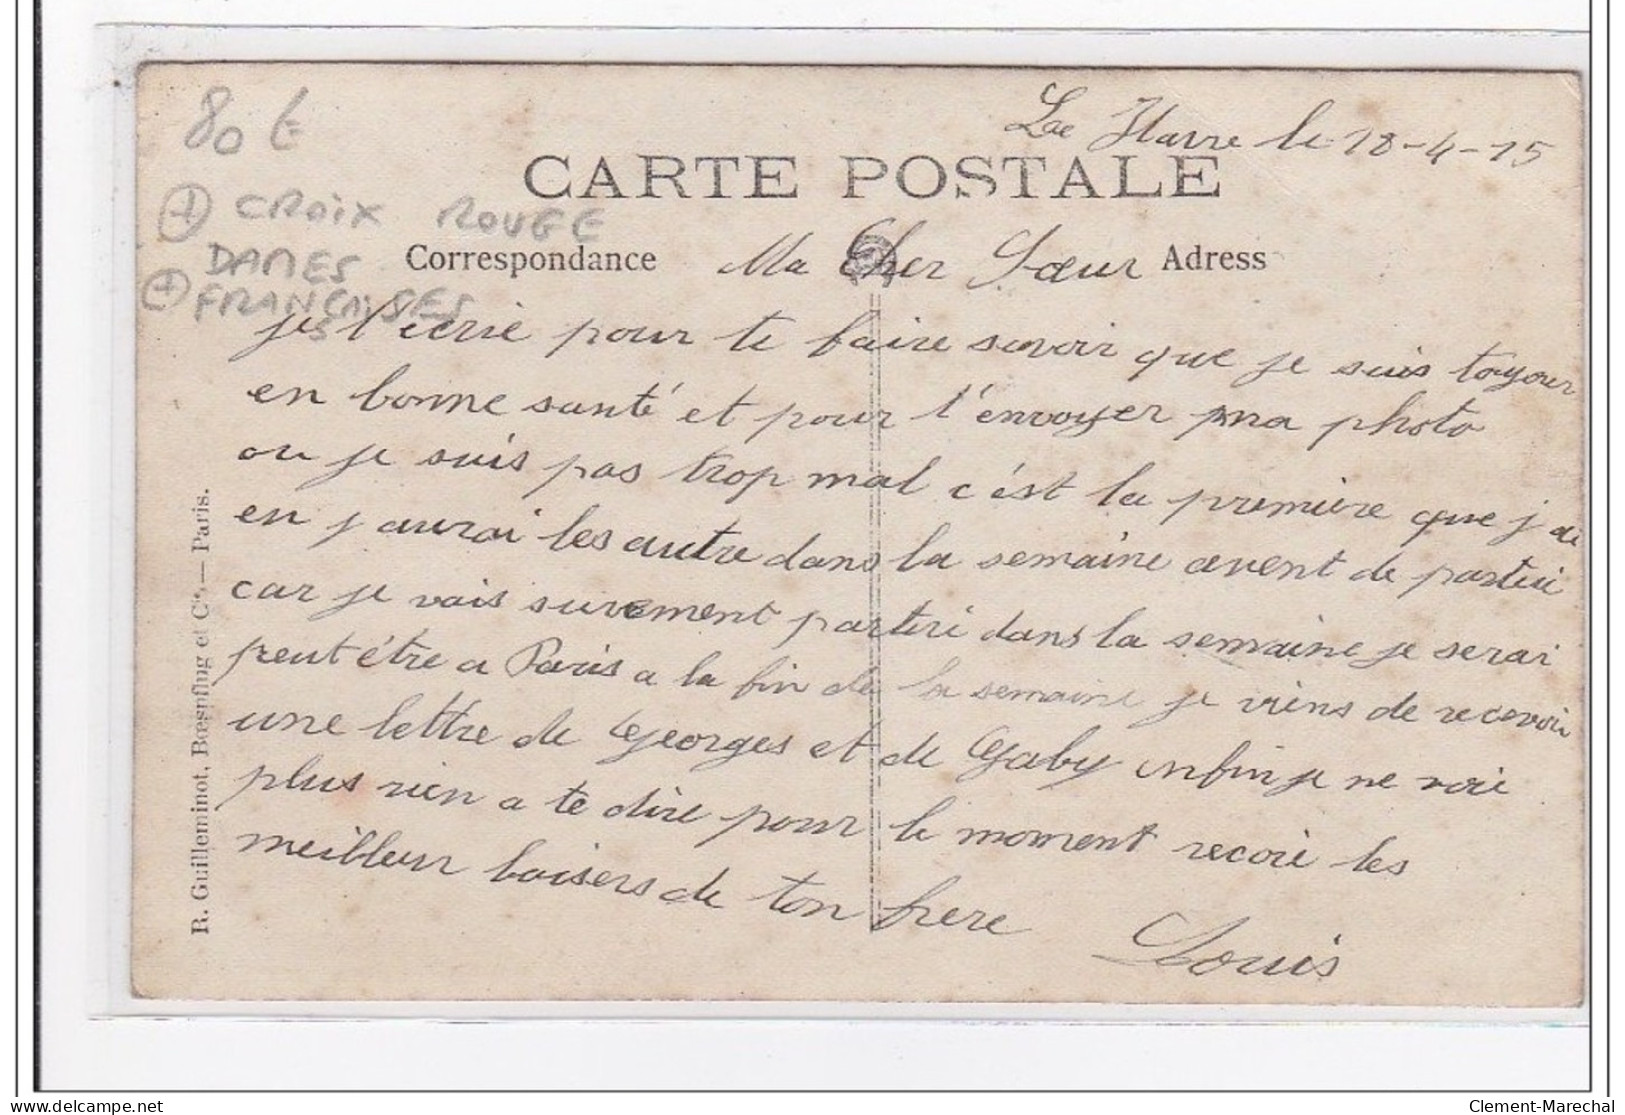 80 €
Le Havre le 18-4-15
CARTE POSTALE
+ CROIX ROUGE
DAMES
+ FRANÇAISES
Correspondance
Adress
Ma Cher Sœur
je t'ecrie pour te faire savoir que je suis toujour
en bonne santé et pour t'envoyer ma photo
ou je suis pas trop mal c'est la première que j'ai
en j'aurai les autre dans la semaine avent de partiri
car je vais surement partiri dans la semaine je serai
peut être a Paris a la fin de la semaine je viens de recevoir
une lettre de Georges et de Gaby enfin je ne voie
plus rien a te dire pour le moment recoie les
meilleur baisers de ton frere
Louis
R. Guilleminot, Bœspflug et Cie — Paris.
delcampe.net
Clement-Marechal